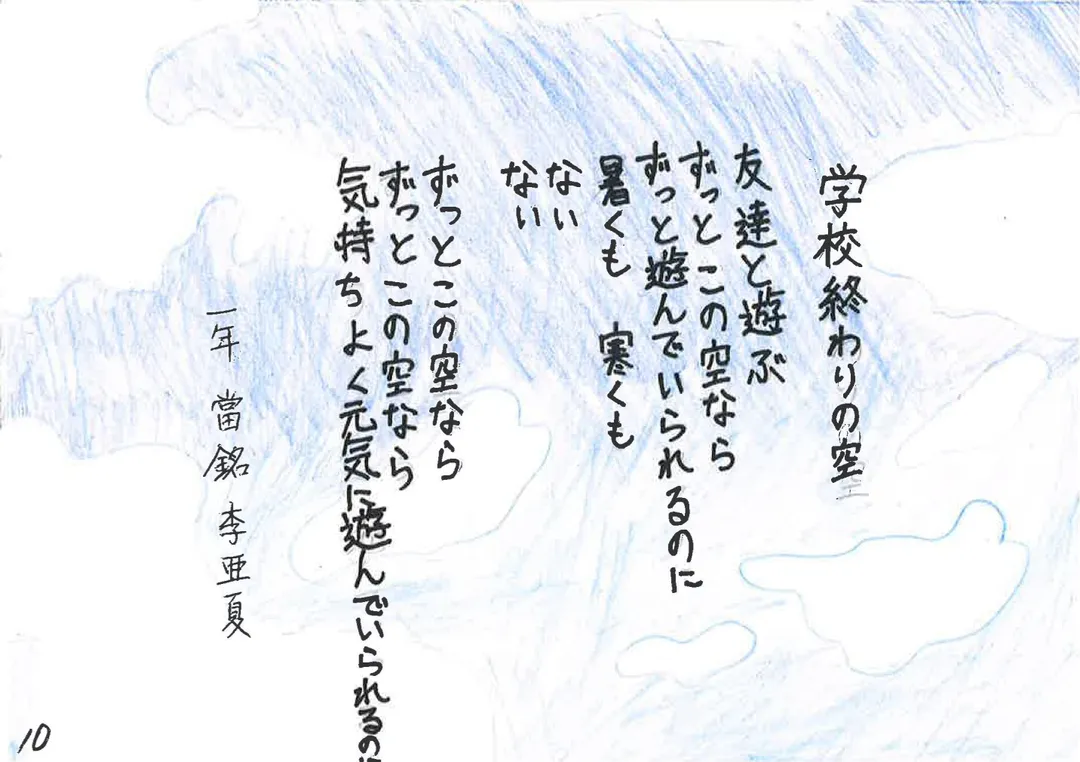 学校終わりの空
友達と遊ぶ
ずっとこの空なら
ずっと遊んでいられるのに
暑くも　寒くも
ない
ない
ずっとこの空なら
ずっとこの空なら
気持ちよく元気に遊んでいられるの
一年　當銘　李亜夏
10